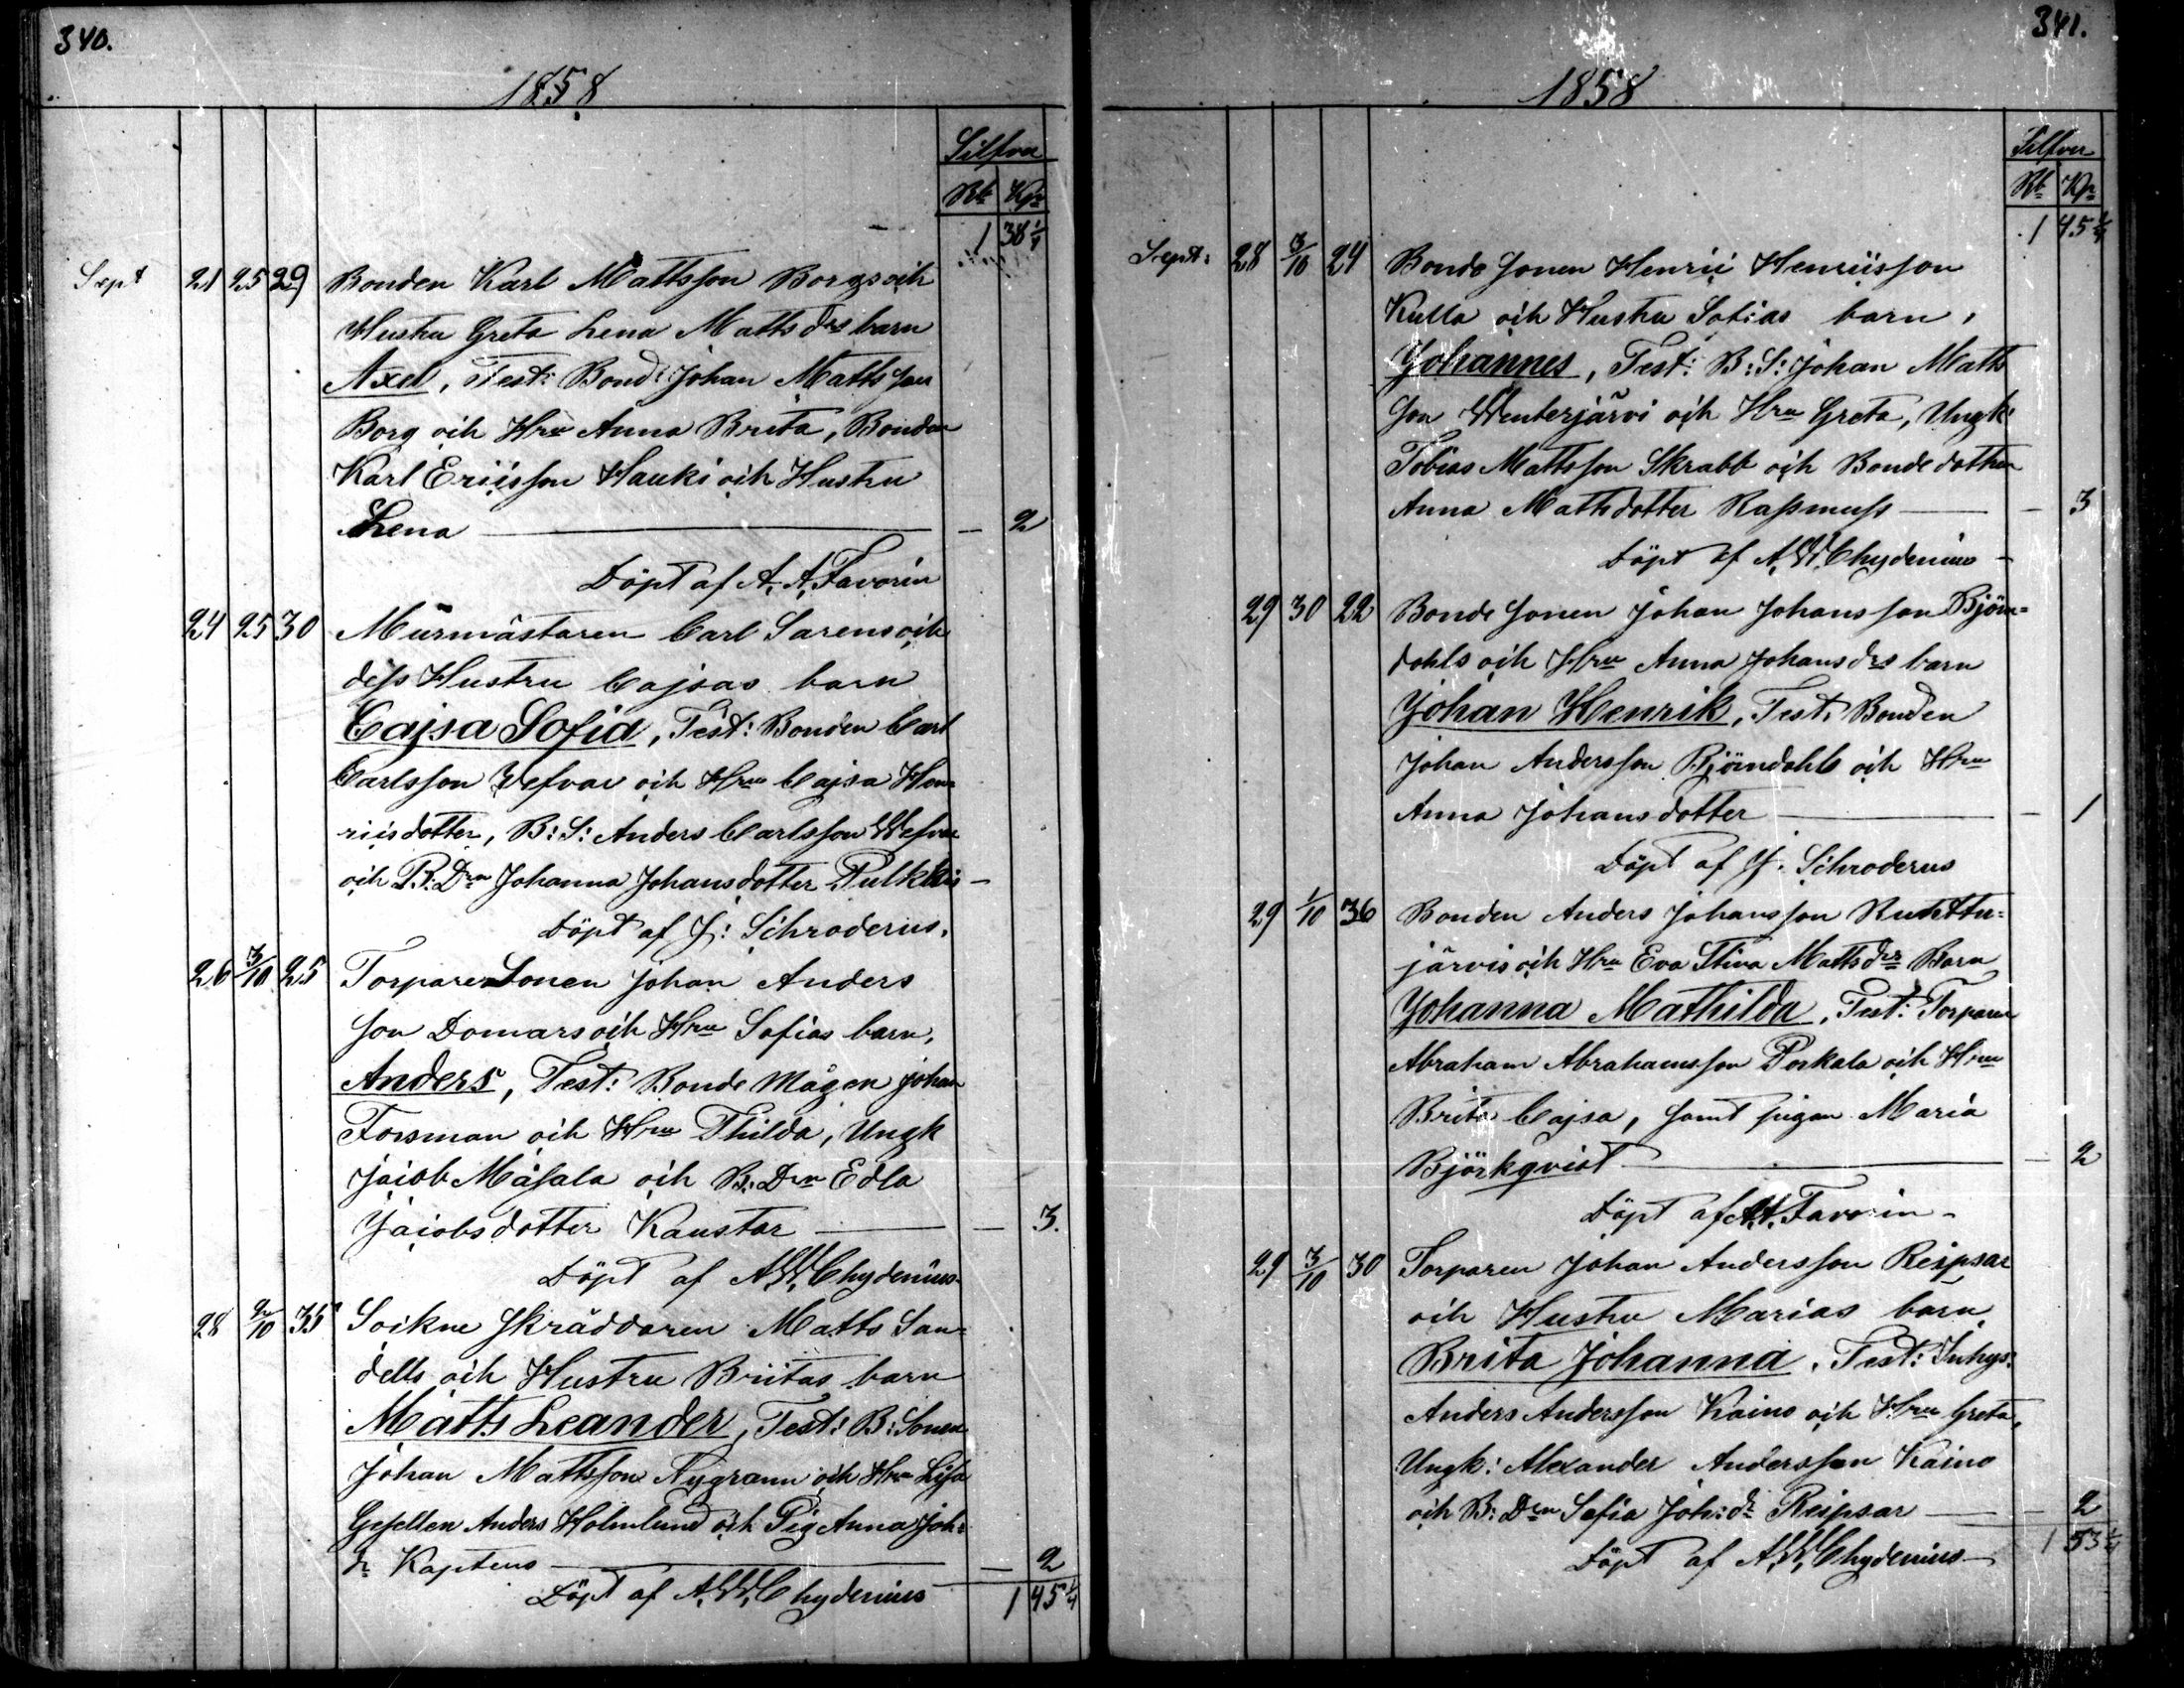 340.
1858
Silfver
Rb Kp
1 38 1/4
Sept 21 25 29 Bonden Karl Mattsson Borgs och
Hustru Greta Lena Mattsdrs barn
Axel, Test: Bond: Johan Mattsson
Borg och Hru Anna Brita, Bonden
Karl Ericsson Hauki och Hustru
Lena — 2
Döpt af A. A. Favorin
24 25 30 Murmästaren Carl Sarens och
dess Hustru Cajsas barn
Cajsa Sofia, Test: Bonden Carl
Carlsson Wefvar och Hru Cajsa Hen-
ricsdotter, B: S: Anders Carlsson Wefvar
och B: Drn Johanna Johansdotter Pulkkis —
Döpt af J: Schroderus.
26 3/10 25 Torparesonen Johan Anders
son Domars och Hru Sofias barn,
Anders, Test: Bonde Mågen Johan
Forsman och Hru Thilda, Ungk
Jacob Måsala och B: Drn Edla
Jacobsdotter Kaustar — 3.
Döpt af A. W. Chydenius
28 2/10 35 Sockne Skräddaren Matts San-
dells och Hustru Britas barn
Matts Leander, Test: B: Sonen
Johan Mattsson Nygrann och Hru Lisa
Gesellen Anders Holmlund och Pig Anna Joh:
dr Kaptens — 2
Döpt af A. W. Chydenius 1 45 1/4
341.
1858
Silfver
Rb Kp
1 45 1/4
Sept: 28 3/10 24 Bonde Sonen Henric Henricsson
Kulla och Hustru Sofias barn,
Johannes, Test: B: S: Johan Matts
son Wenterjärvi och Hru Greta, Ungk:
Tobias Mattsson Skrabb och Bonde dottren
Anna Mattsdotter Rassmuss — 3
Döpt af A. W. Chydenius —
29 30 22 Bonde Sonen Johan Johansson Björn-
dahls och Hru Anna Johansdrs barn
Johan Henrik, Test: Bonden
Johan Andersson Björndahl och Hru
Anna Johansdotter — 1
Döpt af J. Schroderus
29 1/10 36 Bonden Anders Johansson Ruotttu-
järvis och Hru Eva Stina Mattsdrs Barn
Johanna Mathilda, Test: Torparen
Abraham Abrahamsson Porkala och Hru
Brita Cajsa, samt pigan Maria
Björkqvist — 2
Döpt af A. A. Favorin —
29 3/10 30 Torparen Johan Andersson Reipsar
och Hustru Marias barn,
Brita Johanna, Test: Inhys:
Anders Andersson Kaino och Hru Greta,
Ungk: Alexander Andersson Kaino
och B: Drn Sofia Joh: dr Reipsar — 2
Döpt af A. W. Chydenius — 1 53 1/4